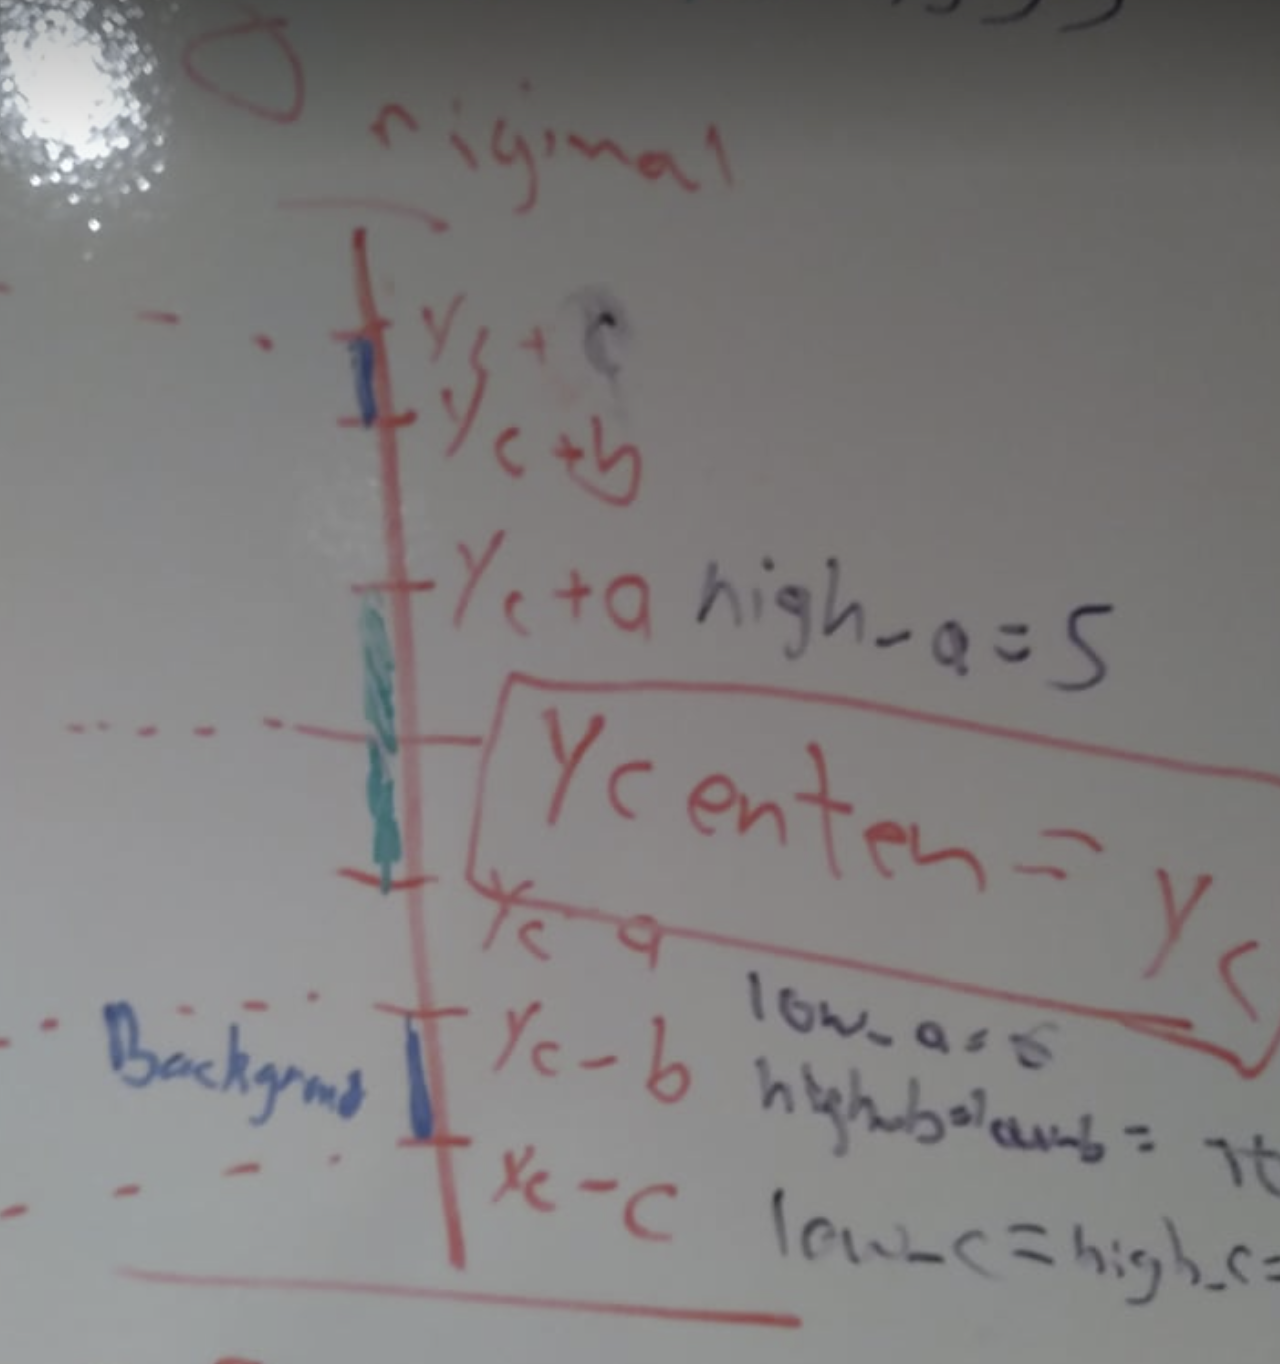 Original
Yc + c
Yc + b
Yc + a high_a = 5
Ycenter = Yc
Yc - a
low_a =
Yc - b
Background
high_b = low_b =
Yc - c
low_c = high_c =